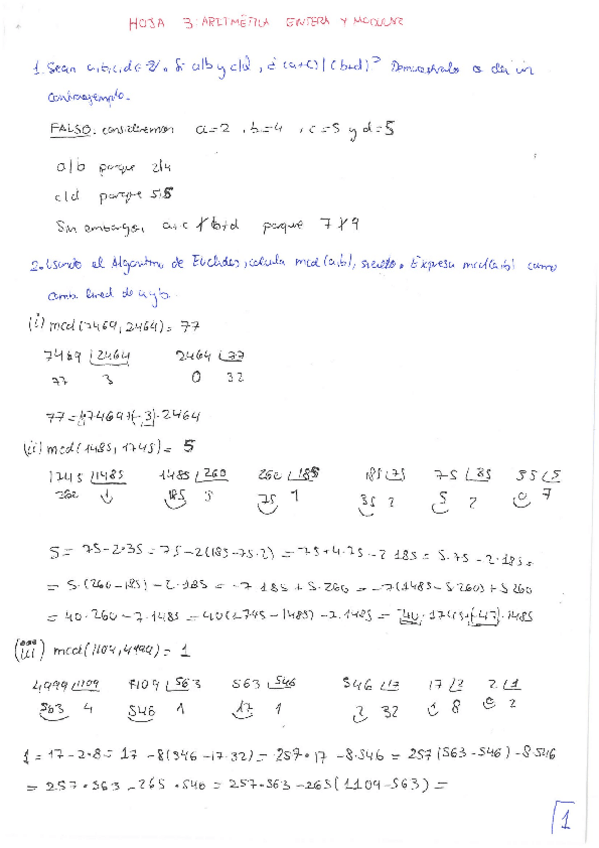 HOJA 3: ARITMÉTICA ENTERA Y MODULAR
1. Sean a,b,c,d ∈ Z. Si a|b y c|d, ¿(a+c)|(b+d)? Demuéstralo o da un
contraejemplo.
FALSO. consideremos a=2, b=4, c=5 y d=5
a|b porque 2|4
c|d porque 5|5
Sin embargo, a+c ∤ b+d porque 7∤9
2. Usando el Algoritmo de Euclides, calcula mcd(a,b), siendo. Expresa mcd(a,b) como
lineal de a y b.
(i) mcd(7469, 2464) = 77
7469 |2464 2464 |77
77 3 0 32
77 = 1·7469+(-3)·2464
(ii) mcd(1485, 1745) = 5
1745 |1485 1485 |260 260 |185 185 |75 75 |35 35 |5
260 1 185 5 75 1 35 2 5 2 0 7
5 = 75-2·35 = 75-2(185-75·2) = 75+4·75-2·185 = 5·75-2·185 =
= 5·(260-185)-2·185 = -7·185+5·260 = -7(1485-5·260)+5·260
= 40·260-7·1485 = 40(1745-1485)-7·1485 = 40·1745+(-47)·1485
(iii) mcd(1109, 4999) = 1
4999 |1109 1109 |563 563 |546 546 |17 17 |2 2 |1
563 4 546 1 17 1 2 32 1 8 0 2
1 = 17-2·8 = 17-8(546-17·32) = 257·17-8·546 = 257(563-546)-8·546
= 257·563-265·546 = 257·563-265(1109-563) =
1